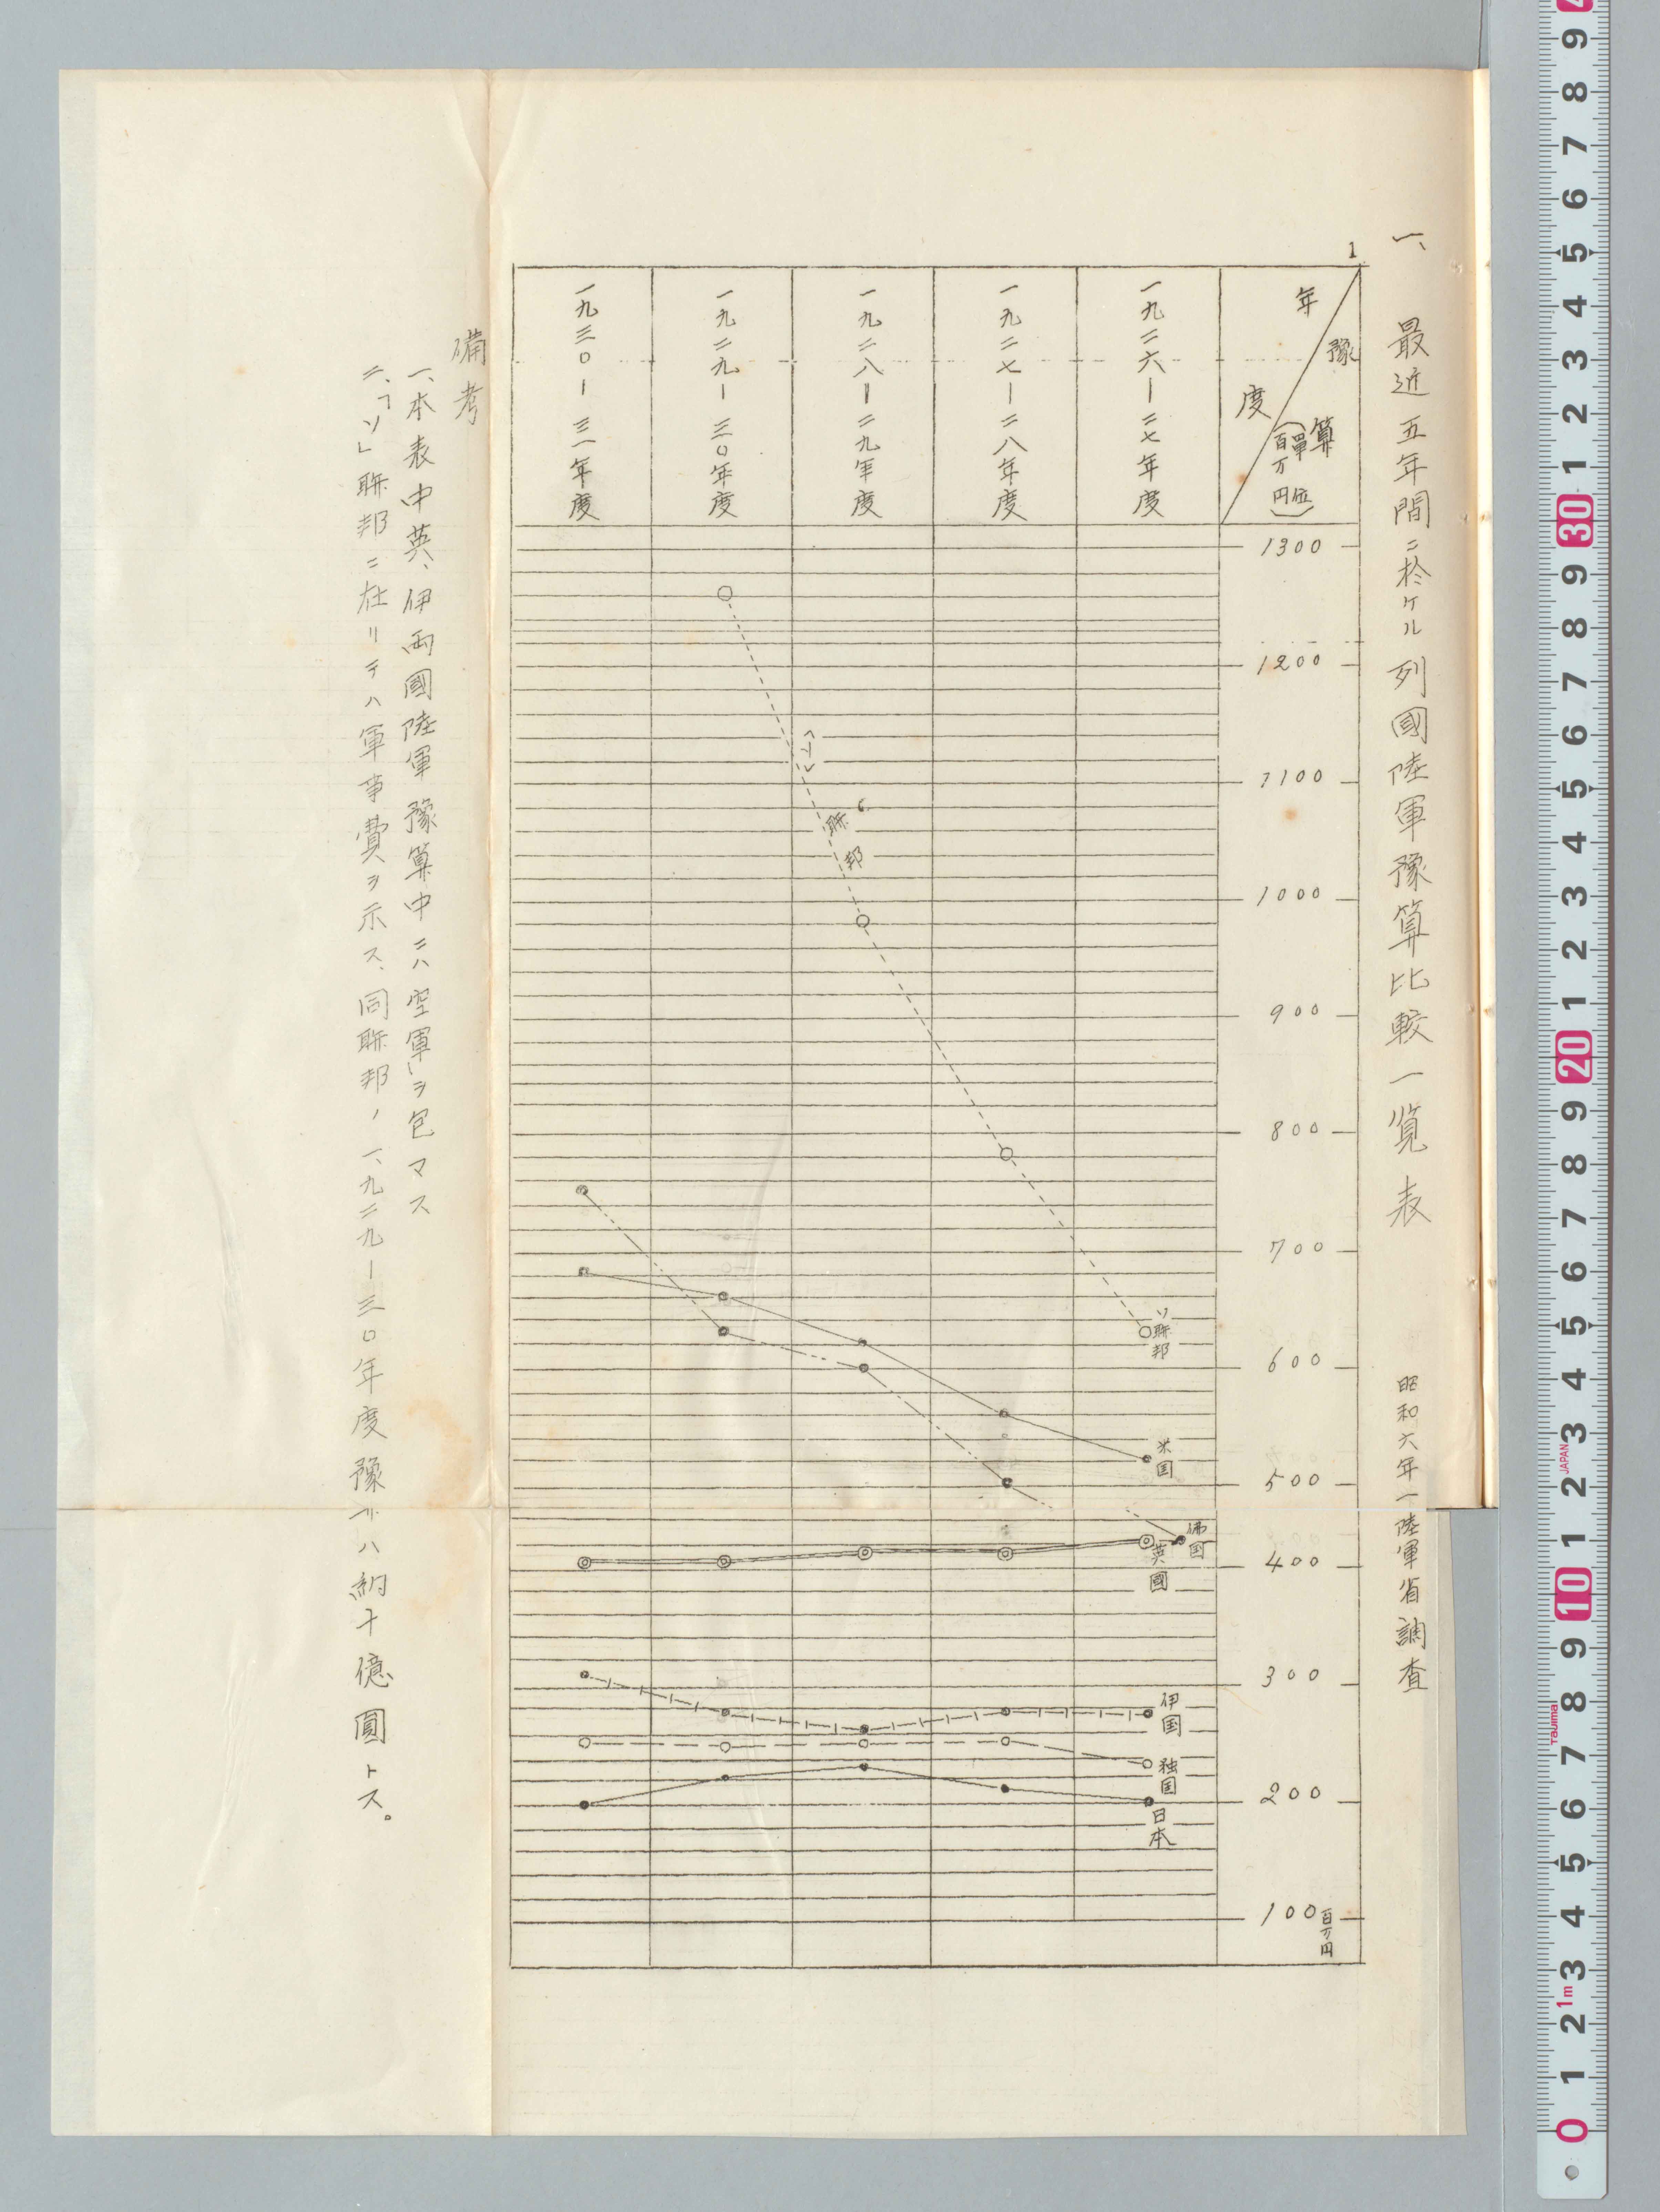 一、最近五年間ニ於ケル列國陸軍豫算比較一覧表 昭和六年一陸軍省調査
1
年度
豫算
（單位百万円）
1300
1200
1100
1000
900
800
700
600
500
400
300
200
100百万円
一九二六―二七年度
一九二七―二八年度
一九二八―二九年度
一九二九―三〇年度
一九三〇―三一年度
ソ聯邦
米国
佛国
英國
伊国
独国
日本
「ソ」聯邦
備考
一、本表中英、伊両國陸軍豫算中ニハ空軍ヲ包マス
二、「ソ」聯邦ニ在リテハ軍事費ヲ示ス、同聯邦ノ一、九二九―三〇年度豫 ハ約十億圓トス。
0
1
2
3
4
5
6
7
8
9
10
1
2
3
4
5
6
7
8
9
20
1
2
3
4
5
6
7
8
9
30
1
2
3
4
5
6
7
8
9
1m
Tajima
JAPAN